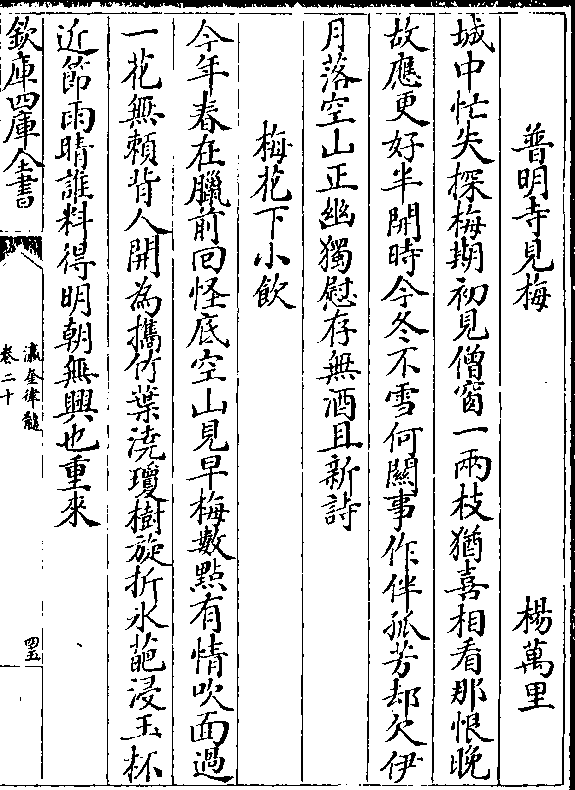 普明寺見梅 楊萬里
城中忙失探梅期初見僧窗一兩枝猶喜相看那恨晚
故應更好半開時今冬不雪何關事作伴孤芳却欠伊
月落空山正幽獨慰存無酒且新詩
梅花下小飲
今年春在臘前回怪底空山見早梅數點有情吹面過
一花無賴背人開為攜竹葉澆瓊樹旋折氷葩浸玉杯
近節雨晴誰料得明朝無興也重來
欽定四庫全書
瀛奎律髓
卷二十
四五